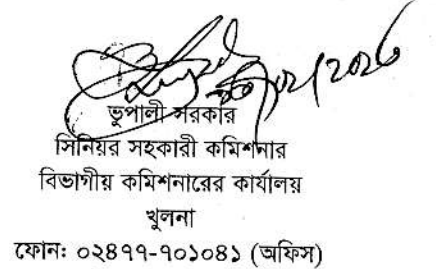 ভুপালী সরকার
সিনিয়র সহকারী কমিশনার
বিভাগীয় কমিশনারের কার্যালয়
খুলনা
ফোনঃ ০২৪৭৭-৭০১০৪১ (অফিস)